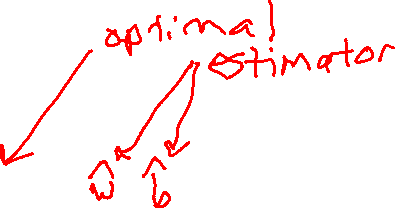 optimal
estimator
ŵ b̂